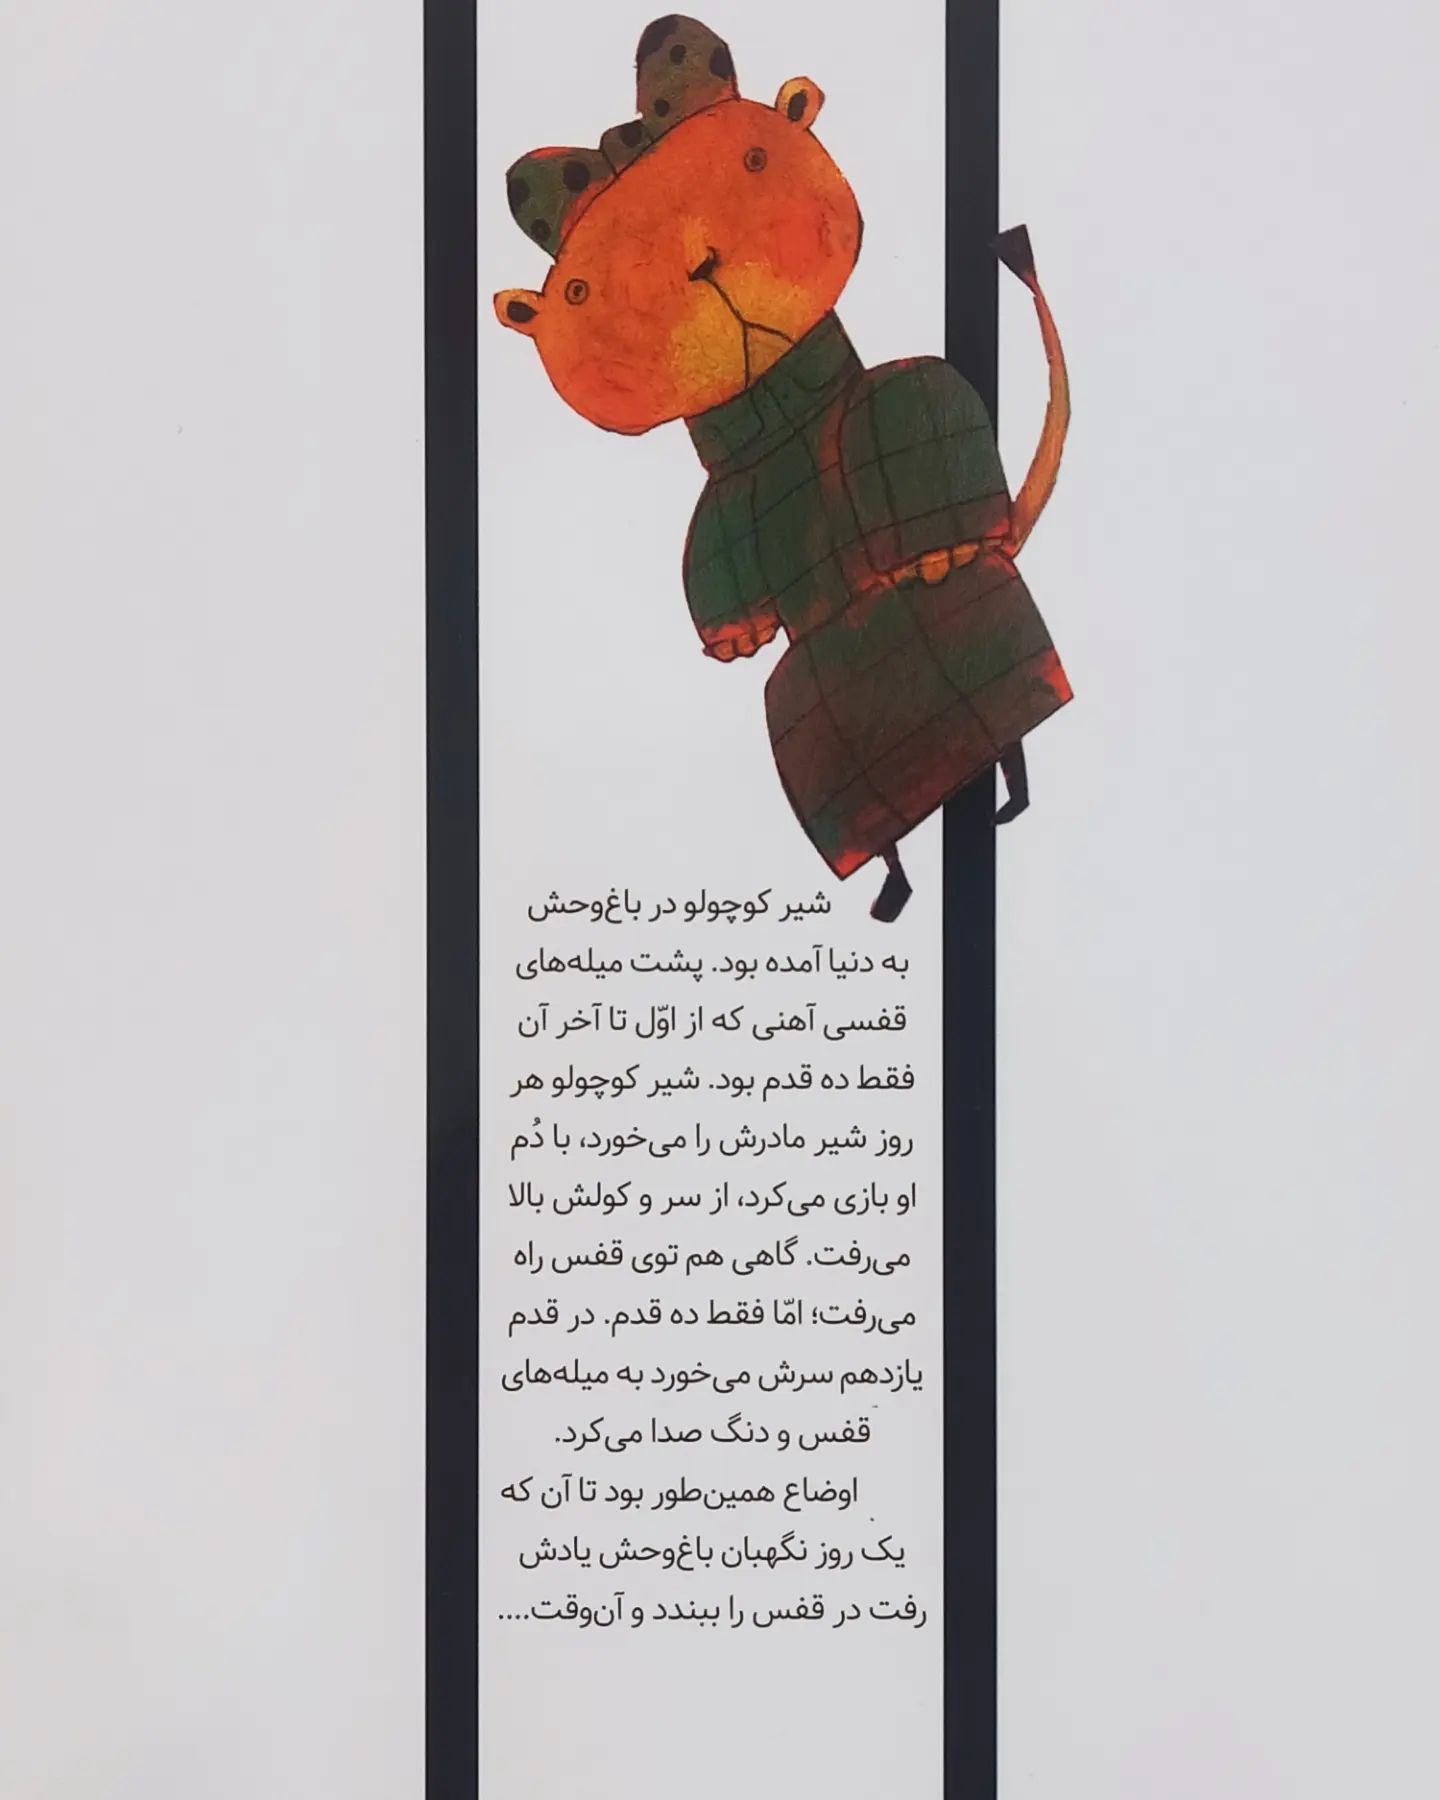 شیر کوچولو در باغ‌وحش
به دنیا آمده بود. پشت میله‌های
قفسی آهنی که از اوّل تا آخر آن
فقط ده قدم بود. شیر کوچولو هر
روز شیر مادرش را می‌خورد، با دُم
او بازی می‌کرد، از سر و کولش بالا
می‌رفت. گاهی هم توی قفس راه
می‌رفت؛ امّا فقط ده قدم. در قدم
یازدهم سرش می‌خورد به میله‌های
قفس و دنگ صدا می‌کرد.
اوضاع همین‌طور بود تا آن که
یک روز نگهبان باغ‌وحش یادش
رفت در قفس را ببندد و آن‌وقت....